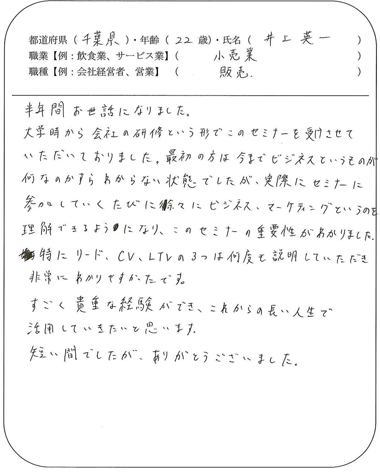 都道府県（千葉県）・年齢（22歳）・氏名（井上英一）
職業【例：飲食業、サービス業】（小売業）
職種【例：会社経営者、営業】（販売.）
半年間お世話になりました。
大学時から会社の研修という形でこのセミナーを受けさせて
いただいておりました。最初の方は今までビジネスというものが
何なのかすらわからない状態でしたが、実際にセミナーに
参加していくたびに徐々にビジネス、マーケティングというのを
理解できるようになり、このセミナーの重要性がわかりました。
特にリード、CV、LTVの3つは何度も説明していただき
非常にわかりやすかったです。
すごく貴重な経験ができ、これからの長い人生で
活用していきたいと思います。
短い間でしたが、ありがとうございました。